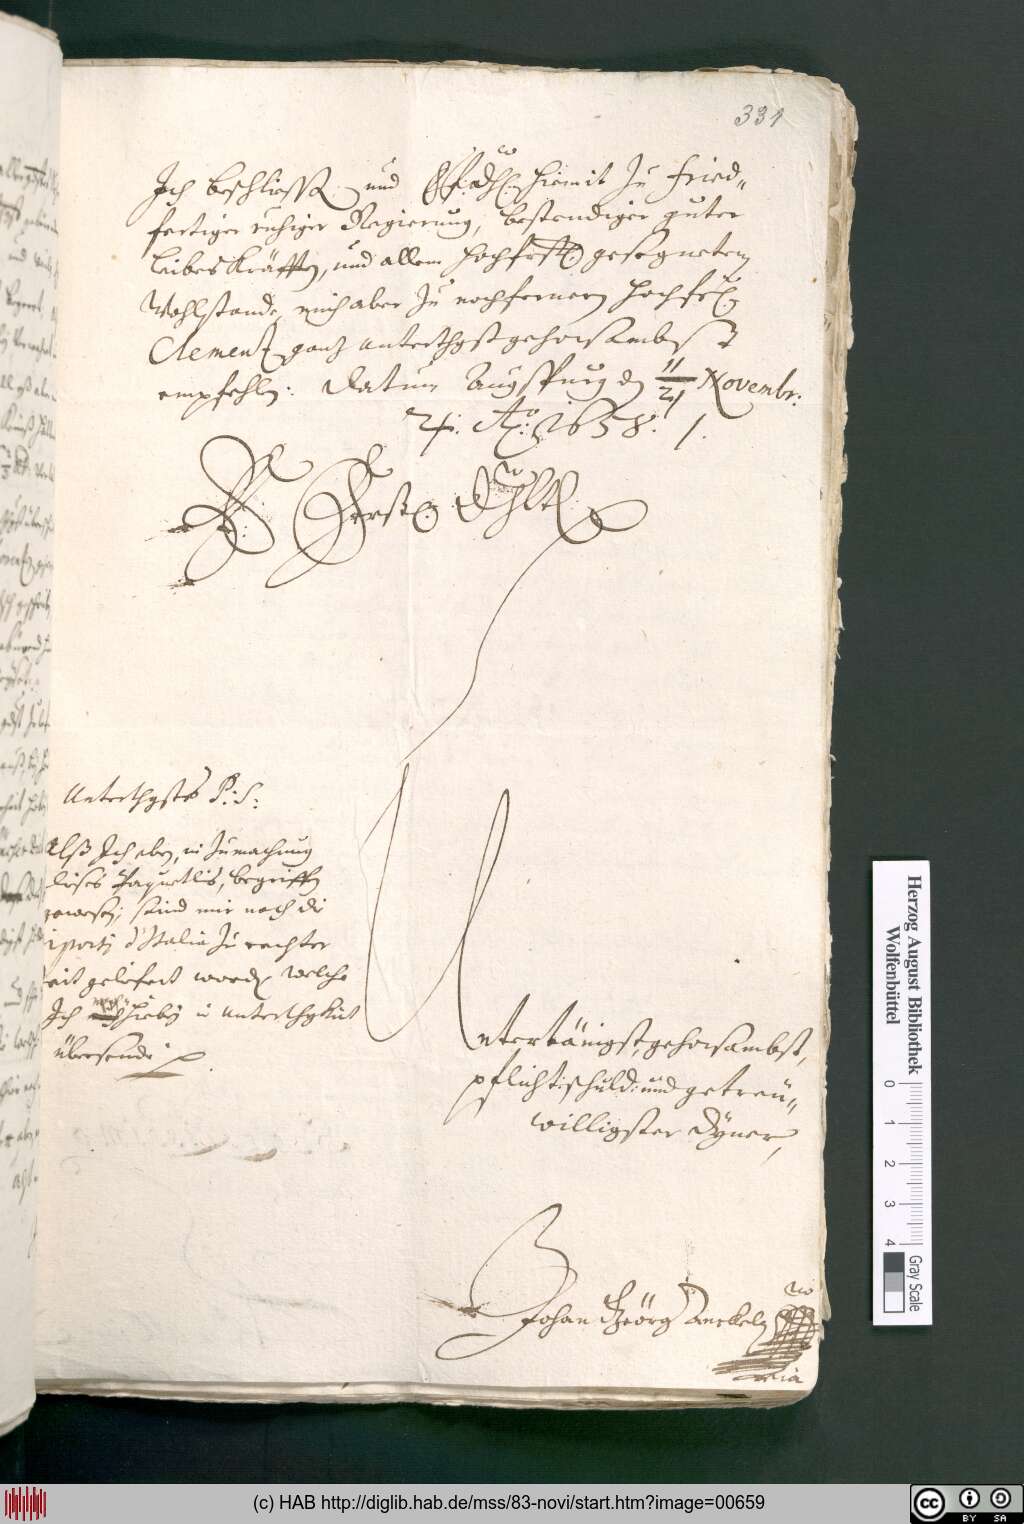 331
Ich beschliesse und E. F. Dhl. hiemit zu fried-
fertiger ruhiger Regierung, bestendiger guter
leibes Kräfften, und allem hochfrstl. gesegneten
Wohlstande, mich aber zu nochfernern hochfrl.
Clementz gantz unterthgst gehorsambst
empfehlen: Datum Augspurg den 11/21 Novembr:
Ao: 1658.
E. Fürstl. Dhlt.
Unterthgstes P: S:
Alß Ich eben, in Zumachung
dieses Paquetlis, begriffen
gewesen; seind mir noch die
d'Italia zu rechter
Zeit geliefert worden, welche
Ich hiebey in unterthgkeit
übersende.
Untertänigst, gehorsambst,
pflichtschuld: und getreü-
willigster Dÿner,
Johan Geörg Anckel
Herzog August Bibliothek
Wolfenbüttel
0 1 2 3 4
Gray Scale
(c) HAB http://diglib.hab.de/mss/83-novi/start.htm?image=00659
cc BY SA